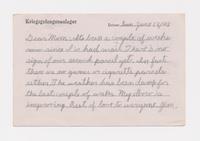 Kriegsgefangenenlager
Datum: Sun. June 18/44
Dear Mom: It's been a couple of weeks
now since I've had mail. There's no
sign of our second parcel yet. In fact
there are no games or cigarette parcels
either. The weather has been damp for
the last couple of weeks. My elbow is
improving. Best of love to everyone Jim.